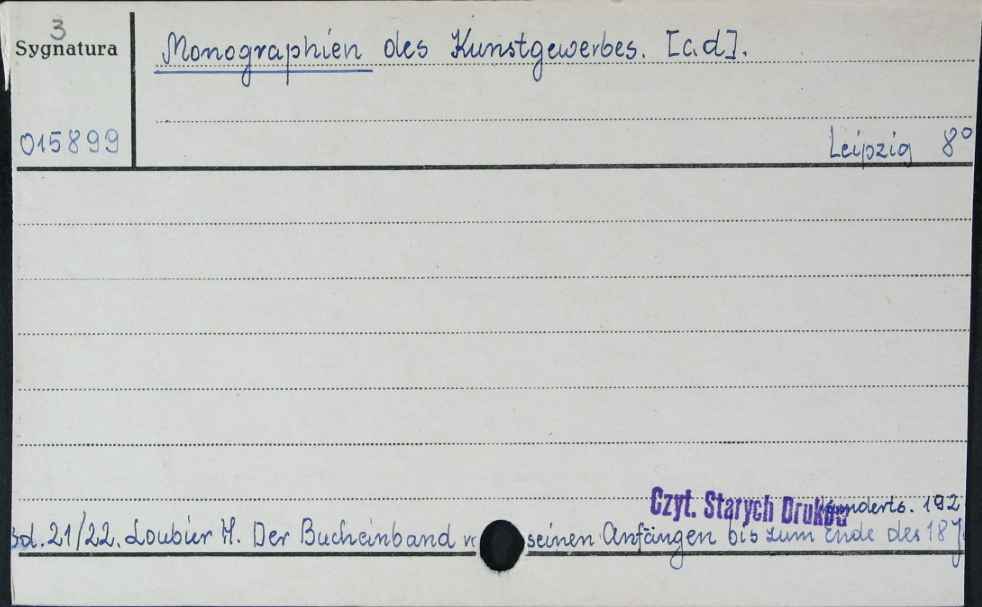 3
Sygnatura
Monographien des Kunstgewerbes. [c.d].
015899
Leipzig 8°
Czyt. Starych Druków
hunderts. 192
Bd. 21/22. Loubier H. Der Bucheinband seinen Anfängen bis zum Ende des 18 J